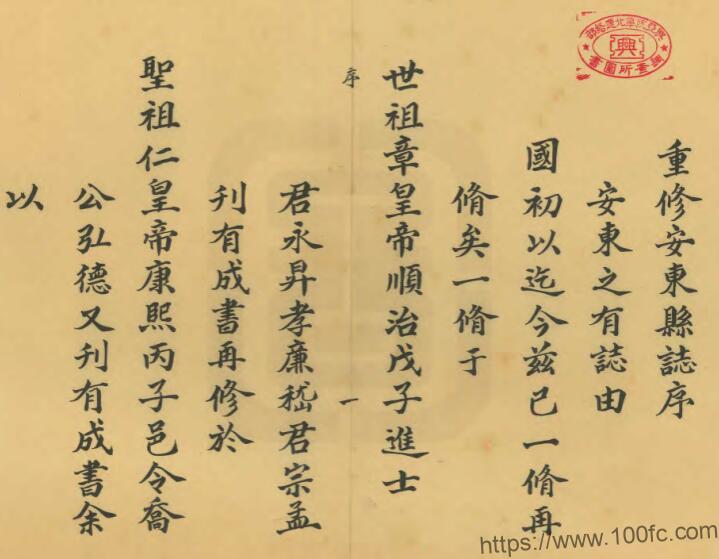 重修安東縣誌序
安東之有誌由
國初以迄今兹已一脩再
脩矣一脩于
世祖章皇帝順治戊子進士
序
一
君永昇孝廉嵇君宗孟
刊有成書再修於
聖祖仁皇帝康熙丙子邑令喬
公弘德又刊有成書余
以
興
https://www.100fc.com